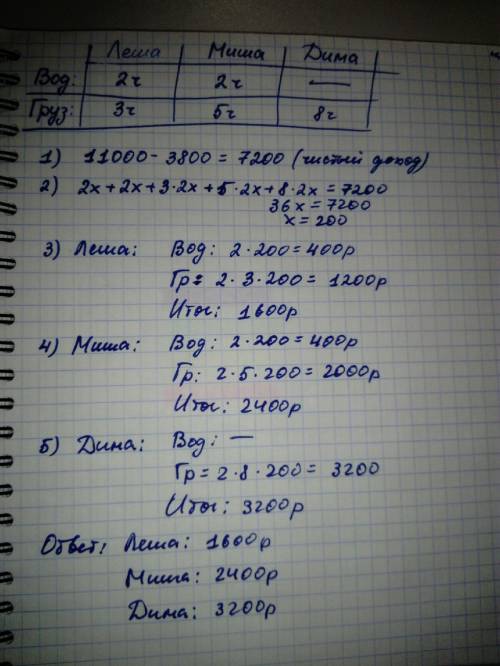 Леша Миша Дима
Вод: 2ч 2ч —
Груз: 3ч 5ч 8ч
1) 11000 - 3800 = 7200 (чистый доход)
2) 2x + 2x + 3·2x + 5·2x + 8·2x = 7200
36x = 7200
x = 200
3) Леша: Вод: 2·200 = 400р
Гр = 2·3·200 = 1200р
Итог: 1600р
4) Миша: Вод: 2·200 = 400р
Гр: 2·5·200 = 2000р
Итог: 2400р
5) Дима: Вод: —
Гр = 2·8·200 = 3200
Итог: 3200р
Ответ: Леша: 1600р
Миша: 2400р
Дима: 3200р